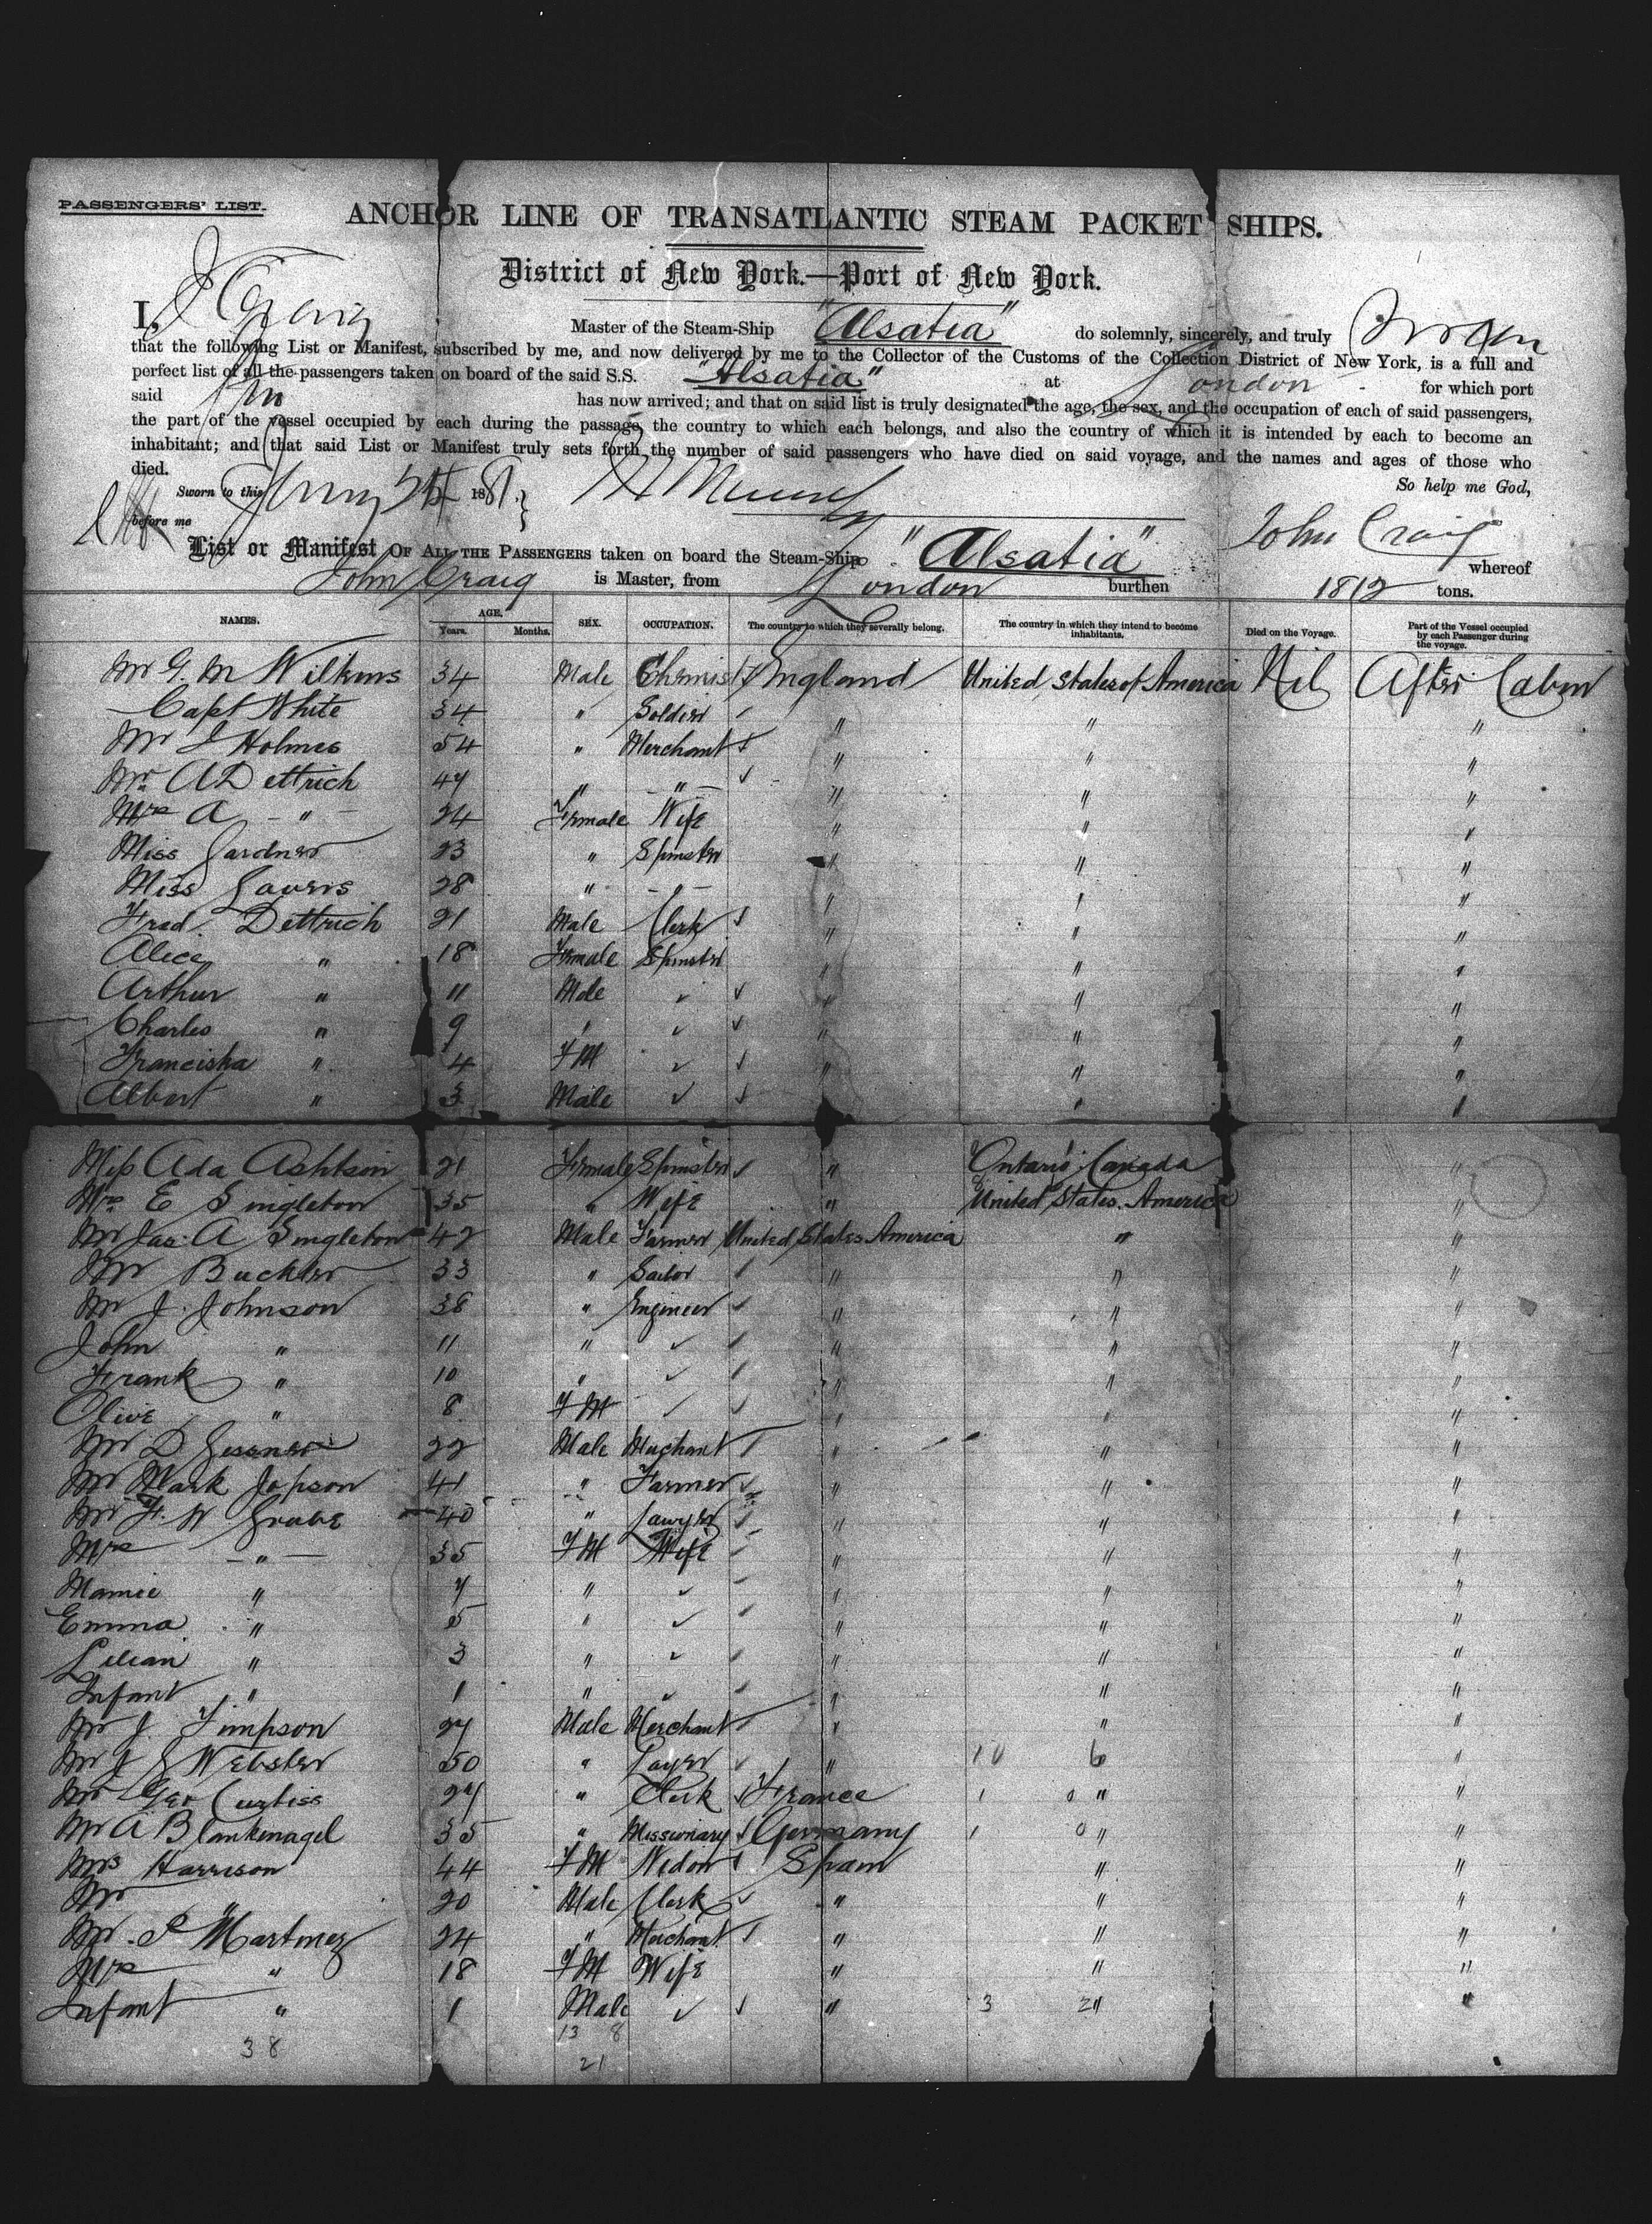 PASSENGERS' LIST.
ANCHOR LINE OF TRANSATLANTIC STEAM PACKET SHIPS.
District of New York.—Port of New York.
I, J Craig Master of the Steam-Ship "Alsatia" do solemnly, sincerely, and truly
that the following List or Manifest, subscribed by me, and now delivered by me to the Collector of the Customs of the Collection District of New York, is a full and
perfect list of all the passengers taken on board of the said S.S. "Alsatia" at London for which port
said has now arrived; and that on said list is truly designated the age, the sex, and the occupation of each of said passengers,
the part of the vessel occupied by each during the passage, the country to which each belongs, and also the country of which it is intended by each to become an
inhabitant; and that said List or Manifest truly sets forth the number of said passengers who have died on said voyage, and the names and ages of those who
died.
So help me God,
Sworn to this 1881.
before me
John Craig
List or Manifest OF ALL THE PASSENGERS taken on board the Steam-Ship "Alsatia" whereof
John Craig is Master, from London burthen 1812 tons.
NAMES. AGE. Years. Months. SEX. OCCUPATION. The country to which they severally belong. The country in which they intend to become inhabitants. Died on the Voyage. Part of the Vessel occupied by each Passenger during the voyage.
Mr G. M Wilkins 34 Male Chemist England United States of America Nil After Cabin
Capt White 34 " Soldier " " "
Mr J Holmes 54 " Merchant " " "
Mr A Dettrich 47 " " " " "
Mrs A " 24 Female Wife " " "
Miss Gardner 23 " Spinster " " "
Miss 28 " " " " "
Fred Dettrich 21 Male Clerk " " "
Alice " 18 Female Spinster " " "
Arthur " 11 Male ✓ " " "
Charles " 9 " ✓ " " "
Franciska " 4 FM ✓ " " "
Albert " 3 Male ✓ " "
Miss Ada Ashtson 21 Female Spinster " Ontario Canada "
Mrs E Singleton 35 " Wife " United States America "
Mr Jas A Singleton 42 Male Farmer United States America " "
Mr Buckler 33 " Sailor " " "
Mr J. Johnson 38 " Engineer " " "
John " 11 " ✓ " " "
Frank " 10 " ✓ " " "
Olive " 8 FM ✓ " " "
Mr D Gessner 22 Male Merchant " " "
Mr Mark Jopson 41 " Farmer " "
Mr F. W Grube 40 " Lawyer " " "
Mrs " 35 FM Wife " " "
Mamie " 7 " ✓ " " "
Emma " 5 " ✓ " " "
Lilian " 3 " ✓ " " "
Infant " 1 " ✓ " " "
Mr J. Timpson 27 Male Merchant " " "
Mr J G Webster 50 " " 10 6 "
Mr Geo Curtiss 27 " Clerk France 1 0 " "
Mr A Blankenagel 35 " Missionary Germany 1 0 " "
Mrs Harrison 44 FM Widow Spain " "
Mr " 20 Male Clerk " " "
Mr. P Martinez 24 " Merchant " " "
Mrs " 18 FM Wife " " "
Infant " 1 Male ✓ " 3 2 " "
38 13 8
21